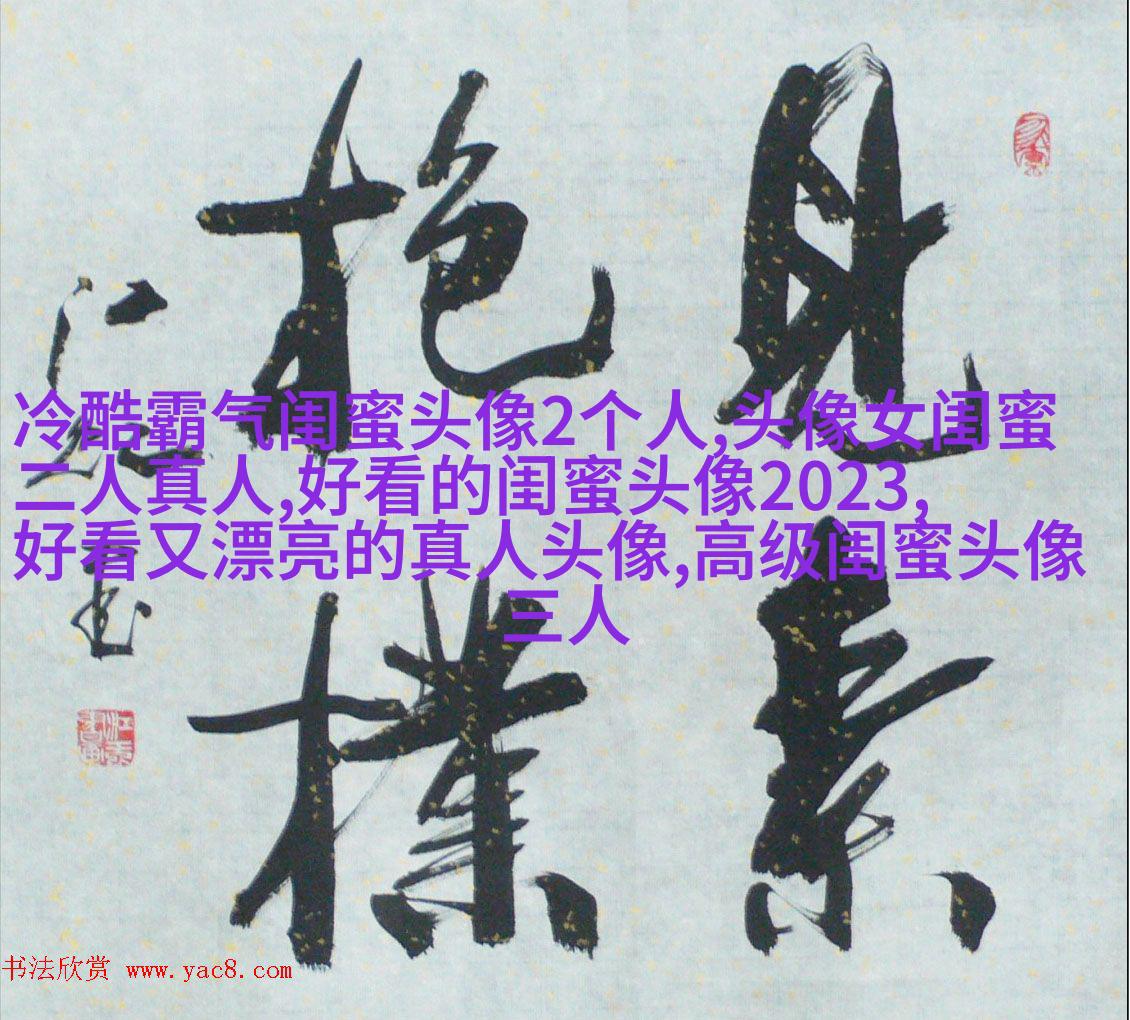 見素
抱樸
冷酷霸气闺蜜头像2个人,头像女闺蜜
二人真人,好看的闺蜜头像2023,
好看又漂亮的真人头像,高级闺蜜头像
三人
书法欣赏 www.yac8.com